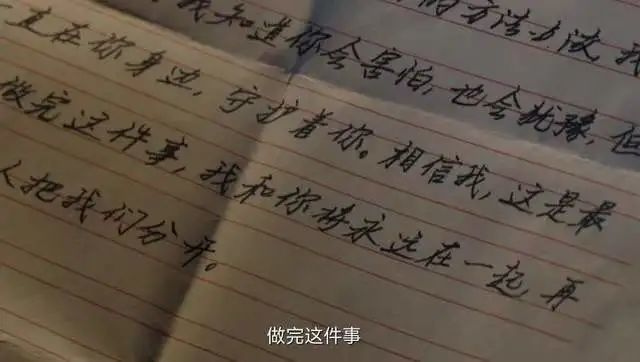 的方法去做,我
我知道你会害怕,也会犹豫,但
一直在你身边,守护着你。相信我,这是最
做完这件事,我和你将永远在一起,再
人把我们分开。
做完这件事